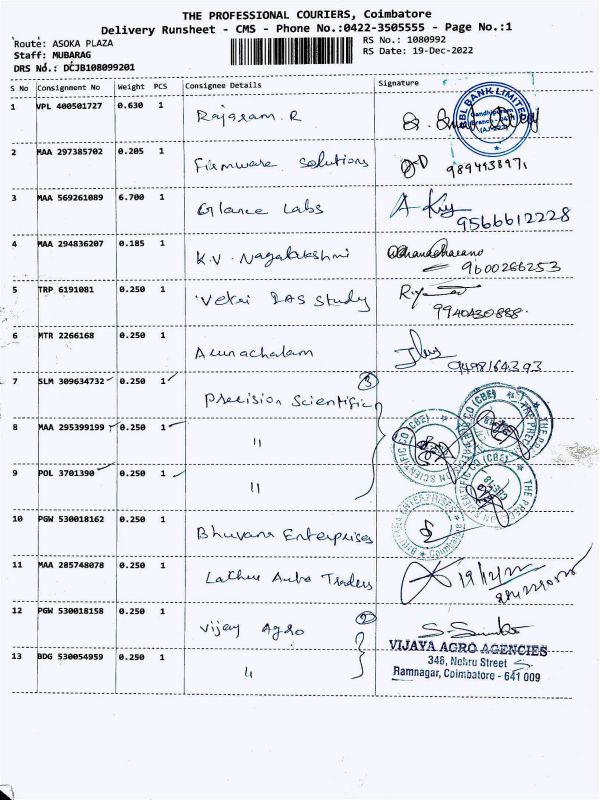 THE PROFESSIONAL COURIERS, Coimbatore
Delivery Runsheet - CMS - Phone No.:0422-3505555 - Page No.:1
Route: ASOKA PLAZA RS No.: 1080992
Staff: MUBARAG RS Date: 19-Dec-2022
DRS No.: DCJB108099201
S No Consignment No Weight PCS Consignee Details Signature
1 VPL 400501727 0.630 1 Rajaram. R
RBL BANK LIMITED
2 MAA 297385702 0.205 1 Firmware Solutions
9894138971
3 MAA 569261089 6.700 1 Glance Labs
9566612228
4 MAA 294836207 0.185 1 K.V. Nagalakshmi
9600266253
5 TRP 6191081 0.250 1 Vetri IAS Study
9940430888
6 MTR 2266168 0.250 1 Arunachalam
9498164393
7 SLM 309634732 0.250 1 Precision Scientific 3
8 MAA 295399199 0.250 1 "
9 POL 3701390 0.250 1 "
10 PGW 530018162 0.250 1 Bhuvana Enterprises
11 MAA 285748078 0.250 1 Auto Traders
19/12/22
12 PGW 530018158 0.250 1 Vijay Agro 2
13 BDG 530054959 0.250 1 "
VIJAYA AGRO AGENCIES
348, Nehru Street
Ramnagar, Coimbatore - 641 009